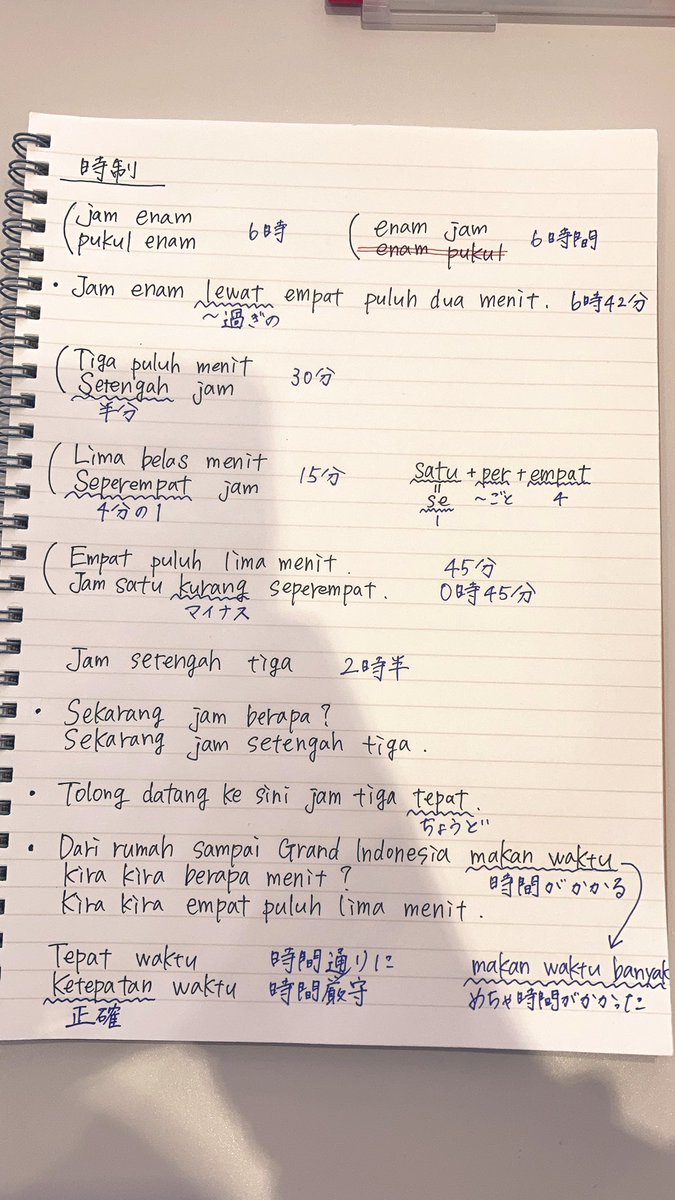 時制
jam enam
pukul enam
6時
enam jam
enam pukul
6時間
・Jam enam lewat empat puluh dua menit. 6時42分
～過ぎの
Tiga puluh menit
Setengah jam
30分
半分
Lima belas menit
Seperempat jam
15分
4分の1
satu + per + empat
=
se ～ごと 4
1
Empat puluh lima menit. 45分
Jam satu kurang seperempat. 0時45分
マイナス
Jam setengah tiga 2時半
・Sekarang jam berapa?
Sekarang jam setengah tiga.
・Tolong datang ke sini jam tiga tepat.
ちょうど
・Dari rumah sampai Grand Indonesia makan waktu
kira kira berapa menit? 時間がかかる
Kira kira empat puluh lima menit.
Tepat waktu 時間通りに
Ketepatan waktu 時間厳守
正確
makan waktu banyak
めちゃ時間がかかった